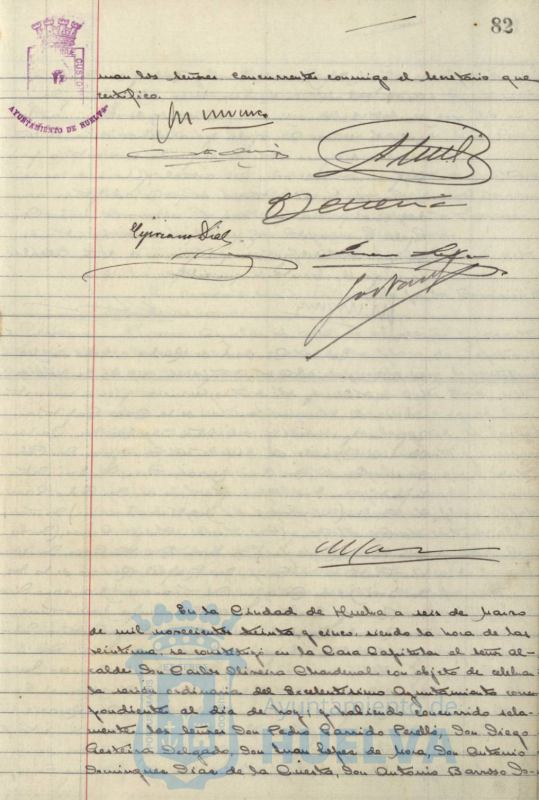 82
AYUNTAMIENTO DE HUELVA
CUSTODI
man los señores concurrentes conmigo el Secretario que
certifico.
Cipriano Diaz
En la Ciudad de Huelva a seis de Marzo
de mil novecientos treinta y cinco, siendo la hora de las
veintiuna, se constituyó en la Casa Capitular el señor Al-
calde, Don Carlos Oliveira Chardenal con objeto de celebrar
la sesión ordinaria del Excelentísimo Ayuntamiento corres
pondiente al día de hoy; y habiendo concurrido sola-
mente los señores Don Pedro Garrido Perelló, Don Diego
Gestoira Delgado, Don Juan Lopez de Mora, Don Antonio
Dominguez Diaz de la Cuesta, Don Antonio Barroso
Ayuntamiento de
HUELVA